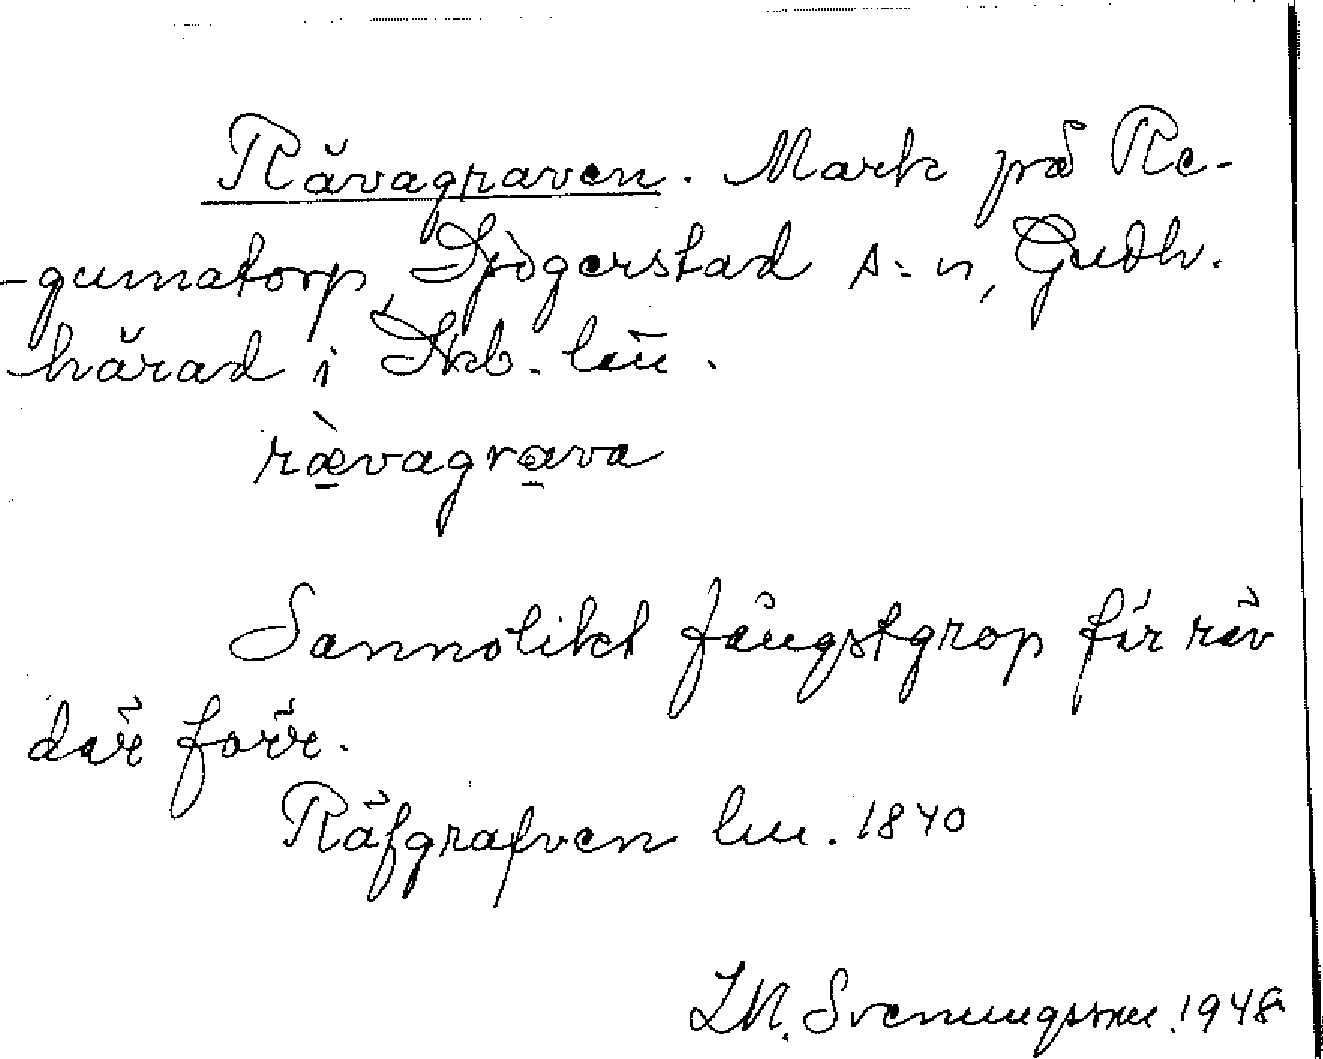 Rävagraven. Mark på Re-
-gumatorp, Sjögerstad s:n, Gudh.
härad i Skb. län.
rævagrava
Sannolikt fångstgrop för räv
där förr.
Räfgrafven lm. 1840
Svenungsson. 1948